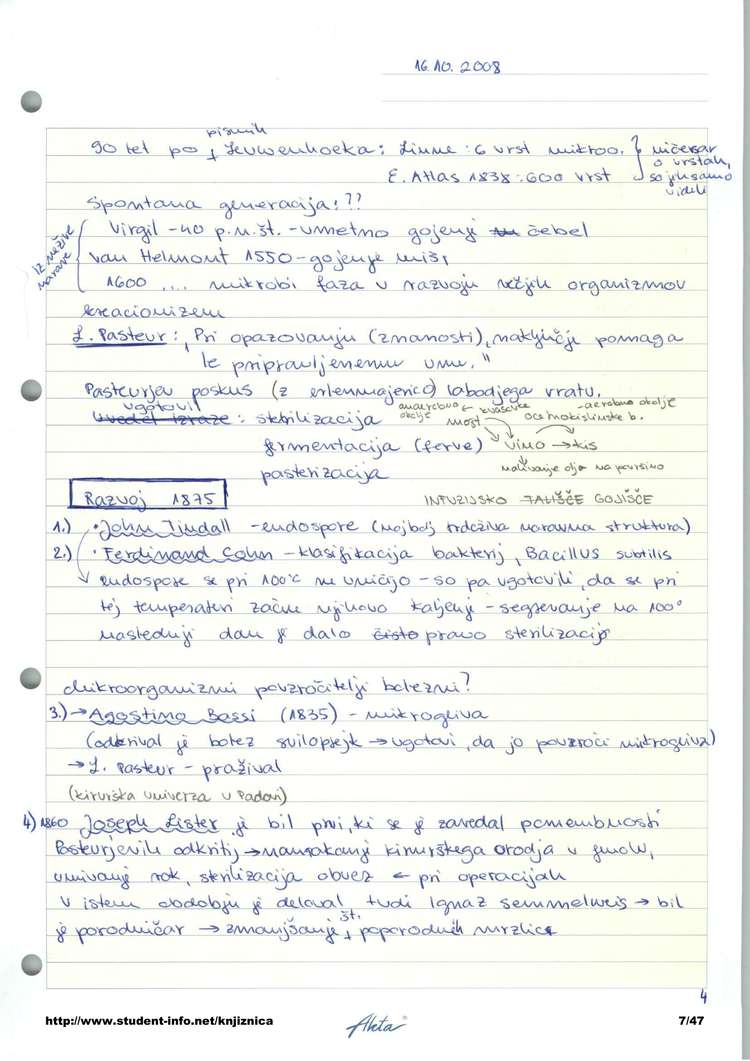 16.10.2008
90 let po pismih Leuwenhoeka: Linne: 6 vrst mikroo. } ničesar
E. Atlas 1838: 600 vrst o vrstah, so jih samo videli
Spontana generacija:??
iz nežive narave { Virgil -40 p.n.št. - umetno gojenje čebel
van Helmont 1550 - gojenje miši
1600 ... mikrobi faza v razvoju večjih organizmov
kreacionizem
L. Pasteur: "Pri opazovanju (znanosti), naključje pomaga
le pripravljenemu umu."
Pasteurjev poskus (z erlenmajerico) labodjega vratu.
Uvedel izraze ugotovil: sterilizacija anaerobno okolje ← kvasovke - aerobno okolje
most ocetnokislinske b.
fermentacija (ferve) vino → kis
pasterizacija nalivanje olja na površino
Razvoj 1875 INFUZIJSKO TALIŠČE GOJIŠČE
1.) • John Tindall - endospore (najbolj trdoživa naravna struktura)
2.) • Ferdinand Cohn - klasifikacija bakterij, Bacillus subtilis
→ endospore se pri 100°C ne uničijo - so pa ugotovili, da se pri
tej temperaturi začne njihovo kaljenje - segrevanje na 100°
naslednji dan je dalo čisto pravo sterilizacijo
Mikroorganizmi povzročitelji bolezni?
3.) → Agostino Bassi (1835) - mikrogliva
(odkrival je bolez. sviloprejk → ugotovi, da jo povzroči mikrogliva)
→ L. Pasteur - pražival
(kirurška univerza v Padovi)
4) 1860 Joseph Lister je bil prvi, ki se je zavedal pomembnosti
Pasteurjevih odkritij → namakanje kirurškega orodja v fenolu,
umivanje rok, sterilizacija obvez ← pri operacijah
V istem obdobju je deloval tudi Ignaz Semmelweis → bil
je porodničar → zmanjšanje št. poporodnih mrzlice
4
http://www.student-info.net/knjiznica
Akta
7/47